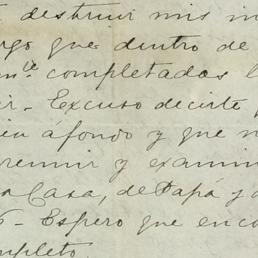 destruir mis in
rgo que dentro de
mte completadas l
ir - Excuso decirte
ien áfondo y que n
reunir y examin
a Casa, de Papá y d
6 - Espero que enco
mpleto